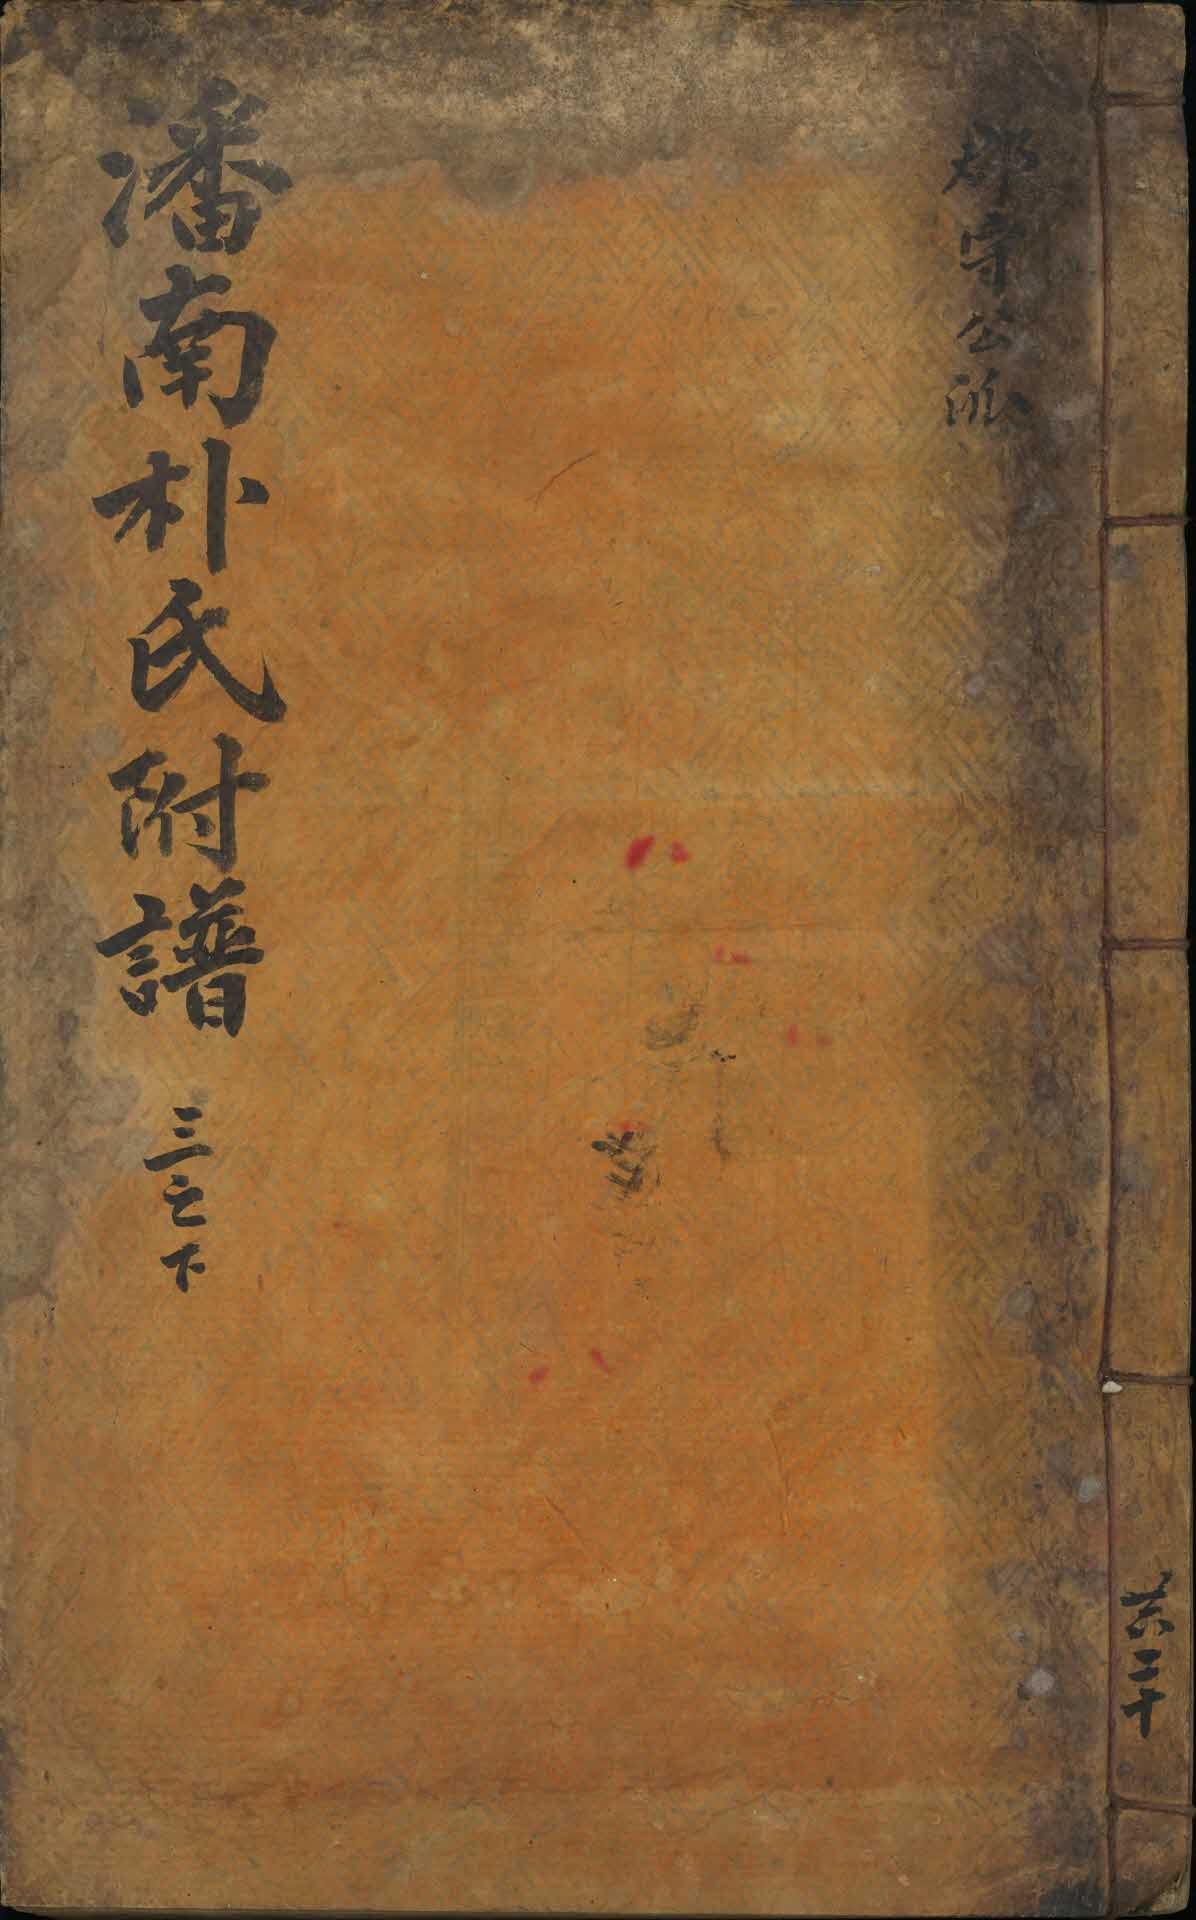 郡守公派
潘南朴氏附譜 三之下
共二十